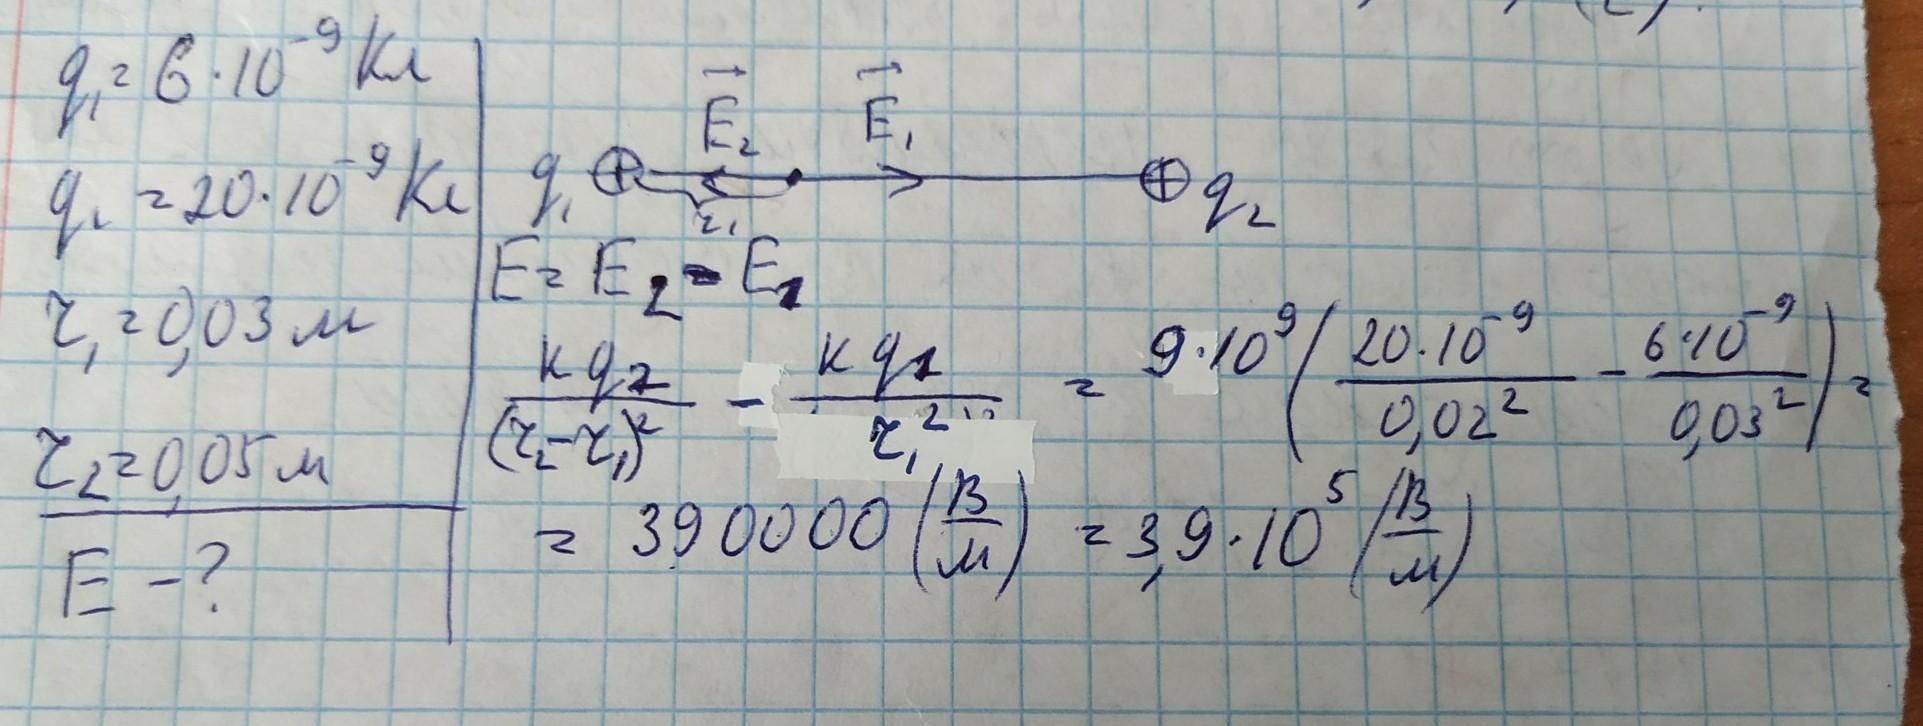 q₁ = 6·10⁻⁹ Кл
q₂ = 20·10⁻⁹ Кл
τ₁ = 0,03 м
τ₂ = 0,05 м
E - ?
E₂ E₁
q₁ ⊕ ⊕ q₂
τ₁
E = E₂ - E₁
кq₂/(τ₂-τ₁)² - кq₁/τ₁² = 9·10⁹ (20·10⁻⁹/0,02² - 6·10⁻⁹/0,03²) =
= 390000 (В/м) = 3,9·10⁵ (В/м)